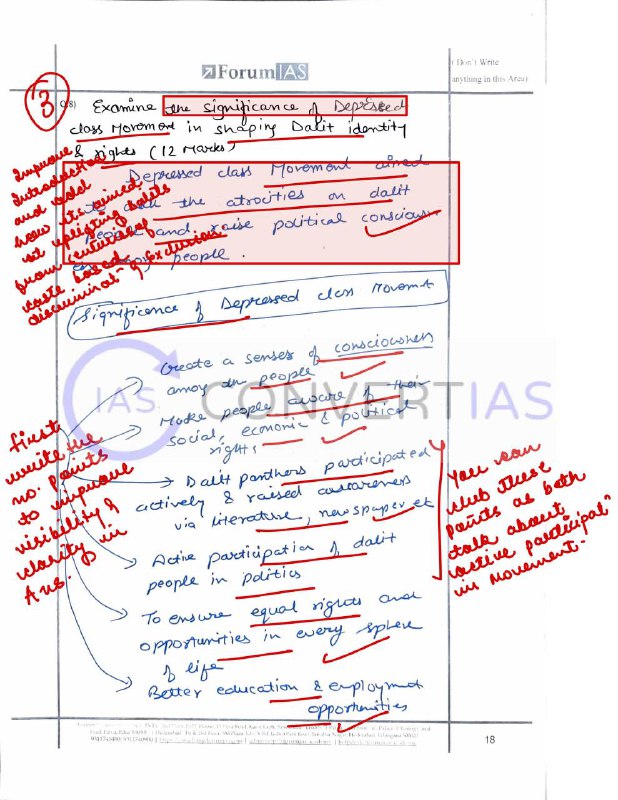 ForumIAS
( Don't Write
anything in this Area)
3
Q.8) Examine the significance of Depressed
class Movement in shaping Dalit identity
& rights (12 Marks)
Depressed class Movement aimed
the atrocities on dalit
people and raise political conscious
people.
Improve
introduction
and add
how it aimed
at uplifting dalits
from centuries of
caste based
discriminatn & exclusion
Significance of Depressed class Movemt
Create a senses of consciousness
among the people
Make people aware of their
social, economic & political
rights
Dalit panthers participated
actively & raised awareness
via literature, newspaper et
Active participation of dalit
people in politics
To ensure equal rights and
opportunities in every sphere
of life
Better education & employment
opportunities
first
write the
no. points
to improve
visibility &
clarity in
Ans.
You can
club these
points as both
talk about
active participatn
in movement.
IAS
CONVERTIAS
18